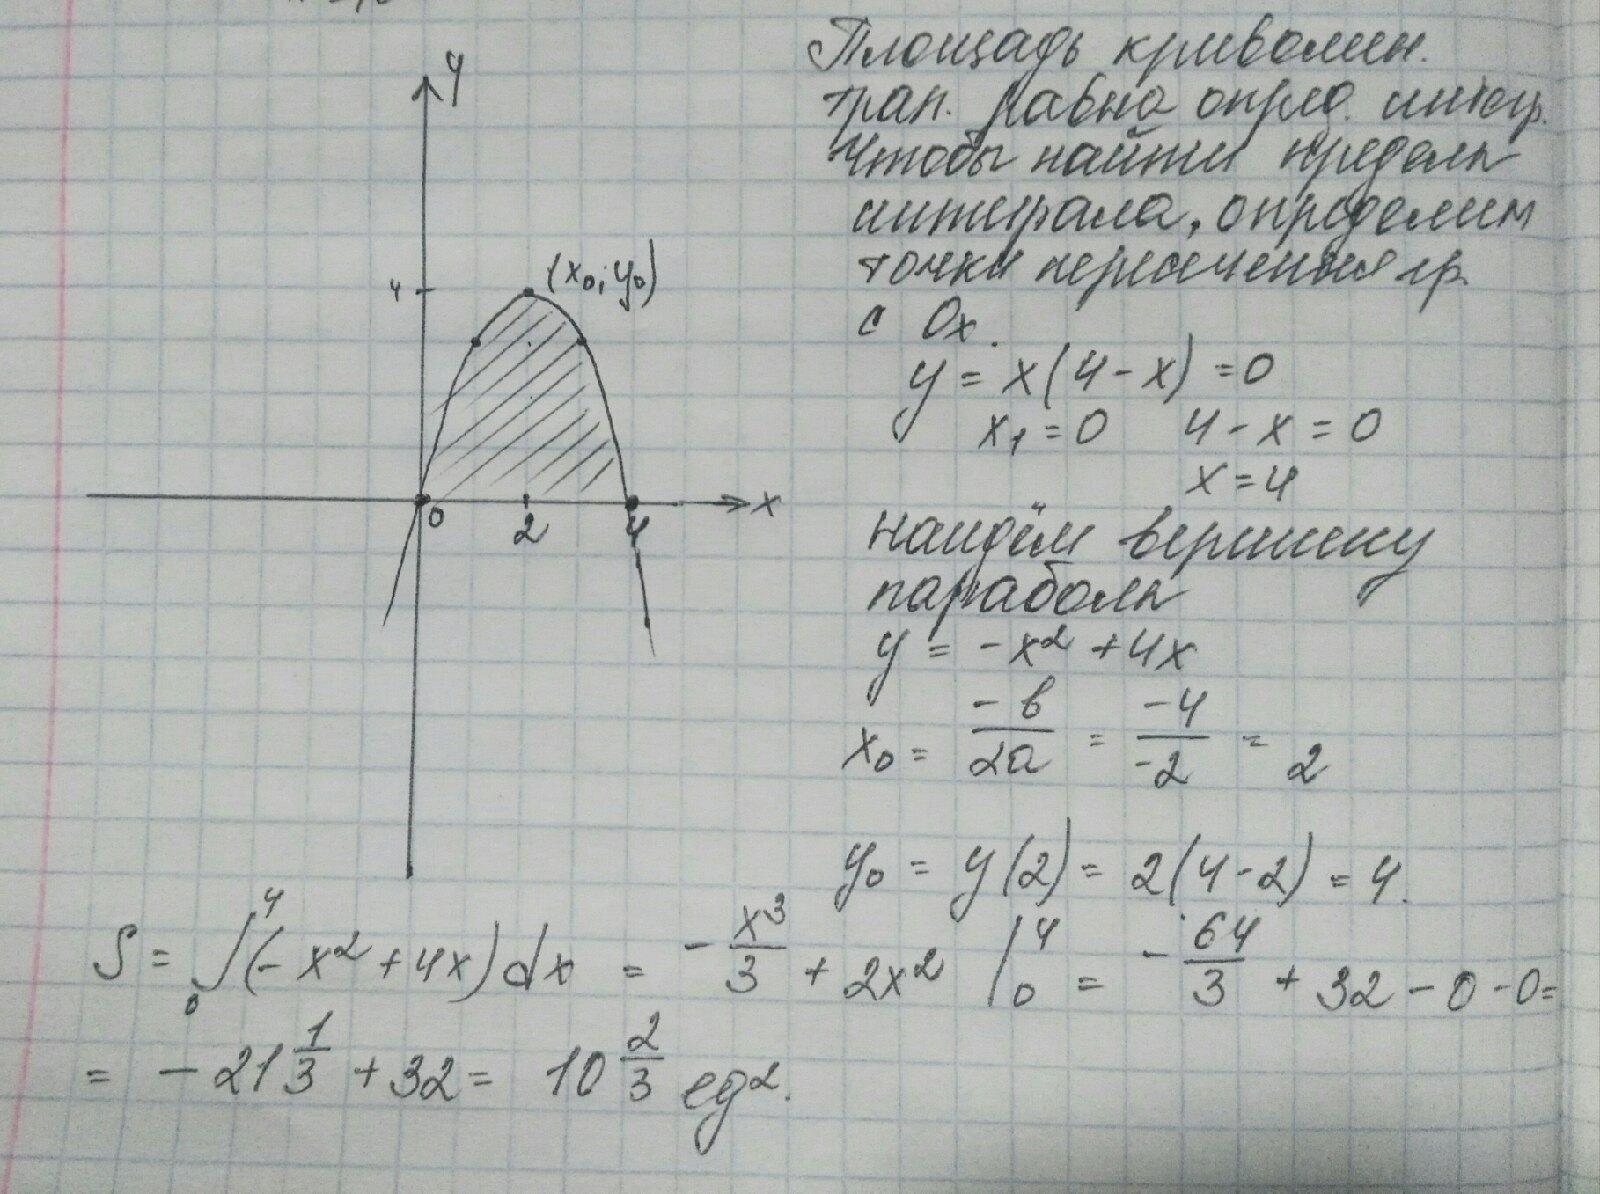 y
4
(x₀; y₀)
0
2
4
x
Площадь криволин.
трап. равна опред. интегр.
Чтобы найти пределы
интеграла, определим
точки пересечения гр.
с Ox.
y = x(4 - x) = 0
x₁ = 0 4 - x = 0
x = 4
найдём вершину
параболы
y = -x² + 4x
x₀ = -b/2a = -4/-2 = 2
y₀ = y(2) = 2(4-2) = 4.
S = ∫₀⁴ (-x² + 4x) dx = -x³/3 + 2x² |₀⁴ = -64/3 + 32 - 0 - 0 =
= -21 1/3 + 32 = 10 2/3 ед².